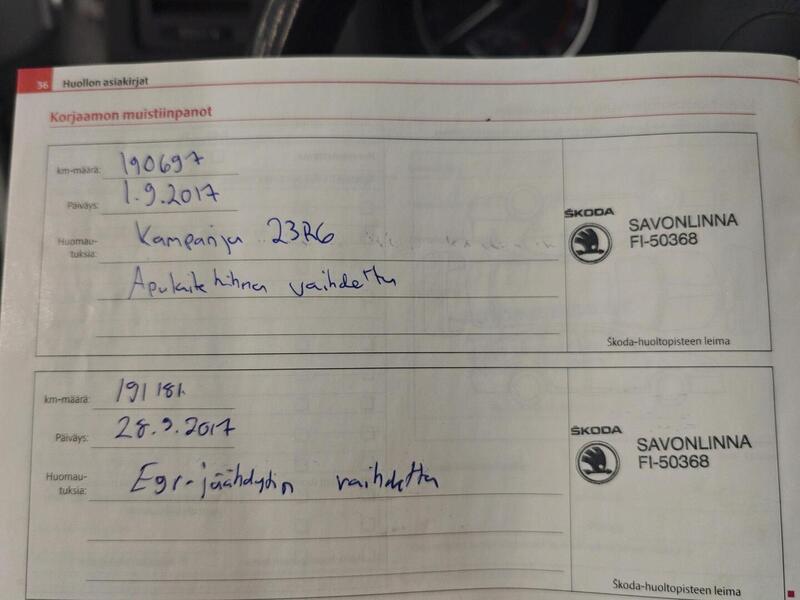 36 Huollon asiakirjat
Korjaamon muistiinpanot
km-määrä: 190697
Päiväys: 1.9.2017
Huomau-
tuksia: Kampanja 23R6
Apulaitehihna vaihdettu
ŠKODA
SAVONLINNA
FI-50368
Škoda-huoltopisteen leima
km-määrä: 191181
Päiväys: 28.9.2017
Huomau-
tuksia: Egr-jäähdytin vaihdettu
ŠKODA
SAVONLINNA
FI-50368
Škoda-huoltopisteen leima